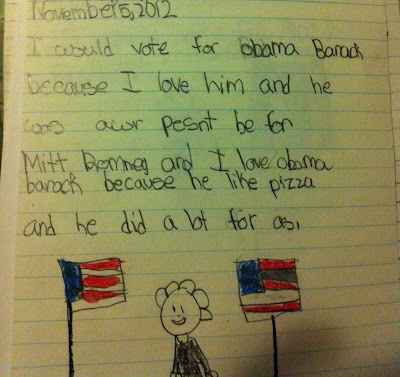 November 5, 2012
I would vote for Obama Barack
because I love him and he
was awr pesnt be for
Mitt Romney and I love obama
barack because he like pizza
and he did a lot for as,